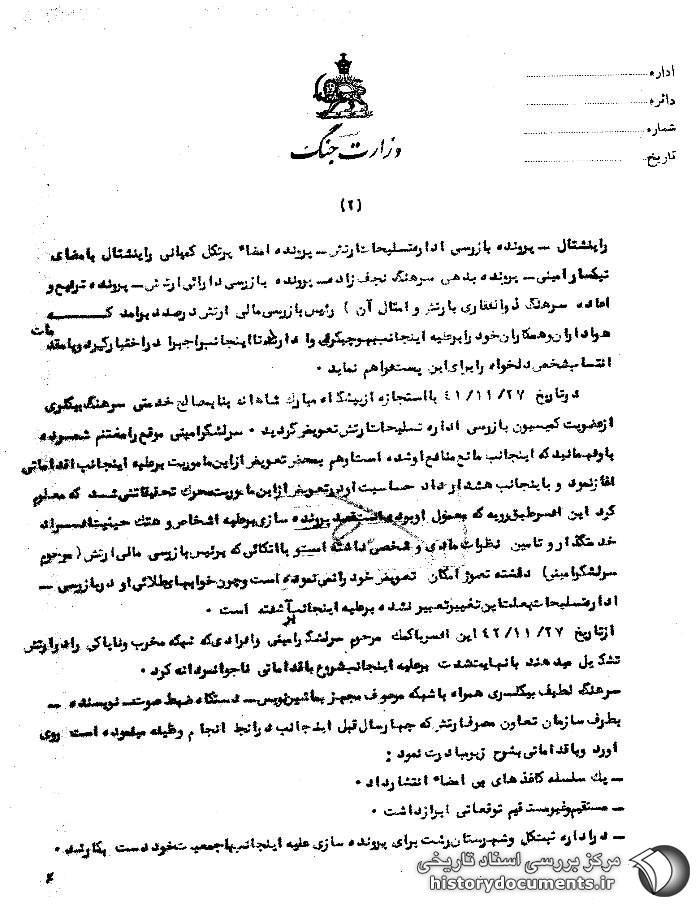 اداره
دائره
شماره
تاریخ
وزارت جنگ
(۲)
راینشتال ـ پرونده بازرسی اداره تسلیحات ارتش ـ پرونده امضاء پرتکل کمپانی راینشتال بامضای
تیمسار امینی ـ پرونده بدهی سرهنگ نجف زاده ـ پرونده بازرسی دارائی ارتش ـ پرونده ترفیع و
اعاده سرهنگ ذوالفقاری بارتش و امثال آن ) رئیس بازرسی مالی ارتش درصدد برآمد کـه
هواداران و همکاران خود را برعلیه اینجانب بهوچیگری وا دارد تا اینجانب را جبرا در اختیار گیرد و یا مقدمات
انتساب شخص دلخواه را برای این پست فراهم نماید ۰
در تاریخ ۴۱/۱۱/۲۷ با استجازه از پیشگاه مبارک شاهانه بنا بمصالح خدمتی سرهنگ بیگلری
از عضویت کمیسیون بازرسی اداره تسلیحات ارتش تعویض گردید ۰ سرلشگر امینی موقع را مغتنم شمرده
باو فهمانید که اینجانب مانع منافع او شده است او هم بمحض تعویض از این ماموریت برعلیه اینجانب اقداماتی
آغاز نمود و باینجانب هشدار داد حساسیت او در تعویض از این ماموریت محرک تحقیقاتی شد که معلوم
کرد این افسر طبق رویه که معمول او بوده قصد پرونده سازی برعلیه اشخاص و هتک حیثیت افسران
خدمتگذار و تامین نظرات مادی و شخصی داشته است و با اتکائی که برئیس بازرسی مالی ارتش ( مرحوم
سرلشگر امینی) داشته تصور امکان تعویض خود را نمی نموده است و چون خوابهای طلائی او در بازرسی ـ
اداره تسلیحات بعلت این تغییر تعبیر نشده برعلیه اینجانب برآشفته است ۰
از تاریخ ۴۲/۱۱/۲۷ این افسر با کمک مرحوم سرلشگر امینی و افرادی که شبکه مخرب و ناپاکی را در ارتش
تشکیل میدهند با نهایت شدت برعلیه اینجانب شروع باقداماتی ناجوانمردانه کرد ۰
سرهنگ لطیف بیگلری همراه با شبکه موصوف مجهز بماشین نویس ـ دستگاه ضبط صوت ـ نویسنده ـ
بطرف سازمان تعاون مصرف ارتش که چهار سال قبل اینجانب در آنجا انجام وظیفه مینموده است روی
آورد و باقداماتی بشرح زیر مبادرت نمود :
ـ یک سلسله کاغذهای بی امضاء انتشار داد ۰
ـ مستقیم و غیر مستقیم توقعاتی ابراز داشت ۰
ـ در اداره و شهرستان رشت برای پرونده سازی علیه اینجانب با جمعیت خود دست بکار شد ۰
مرکز بررسی اسناد تاریخی
historydocuments.ir